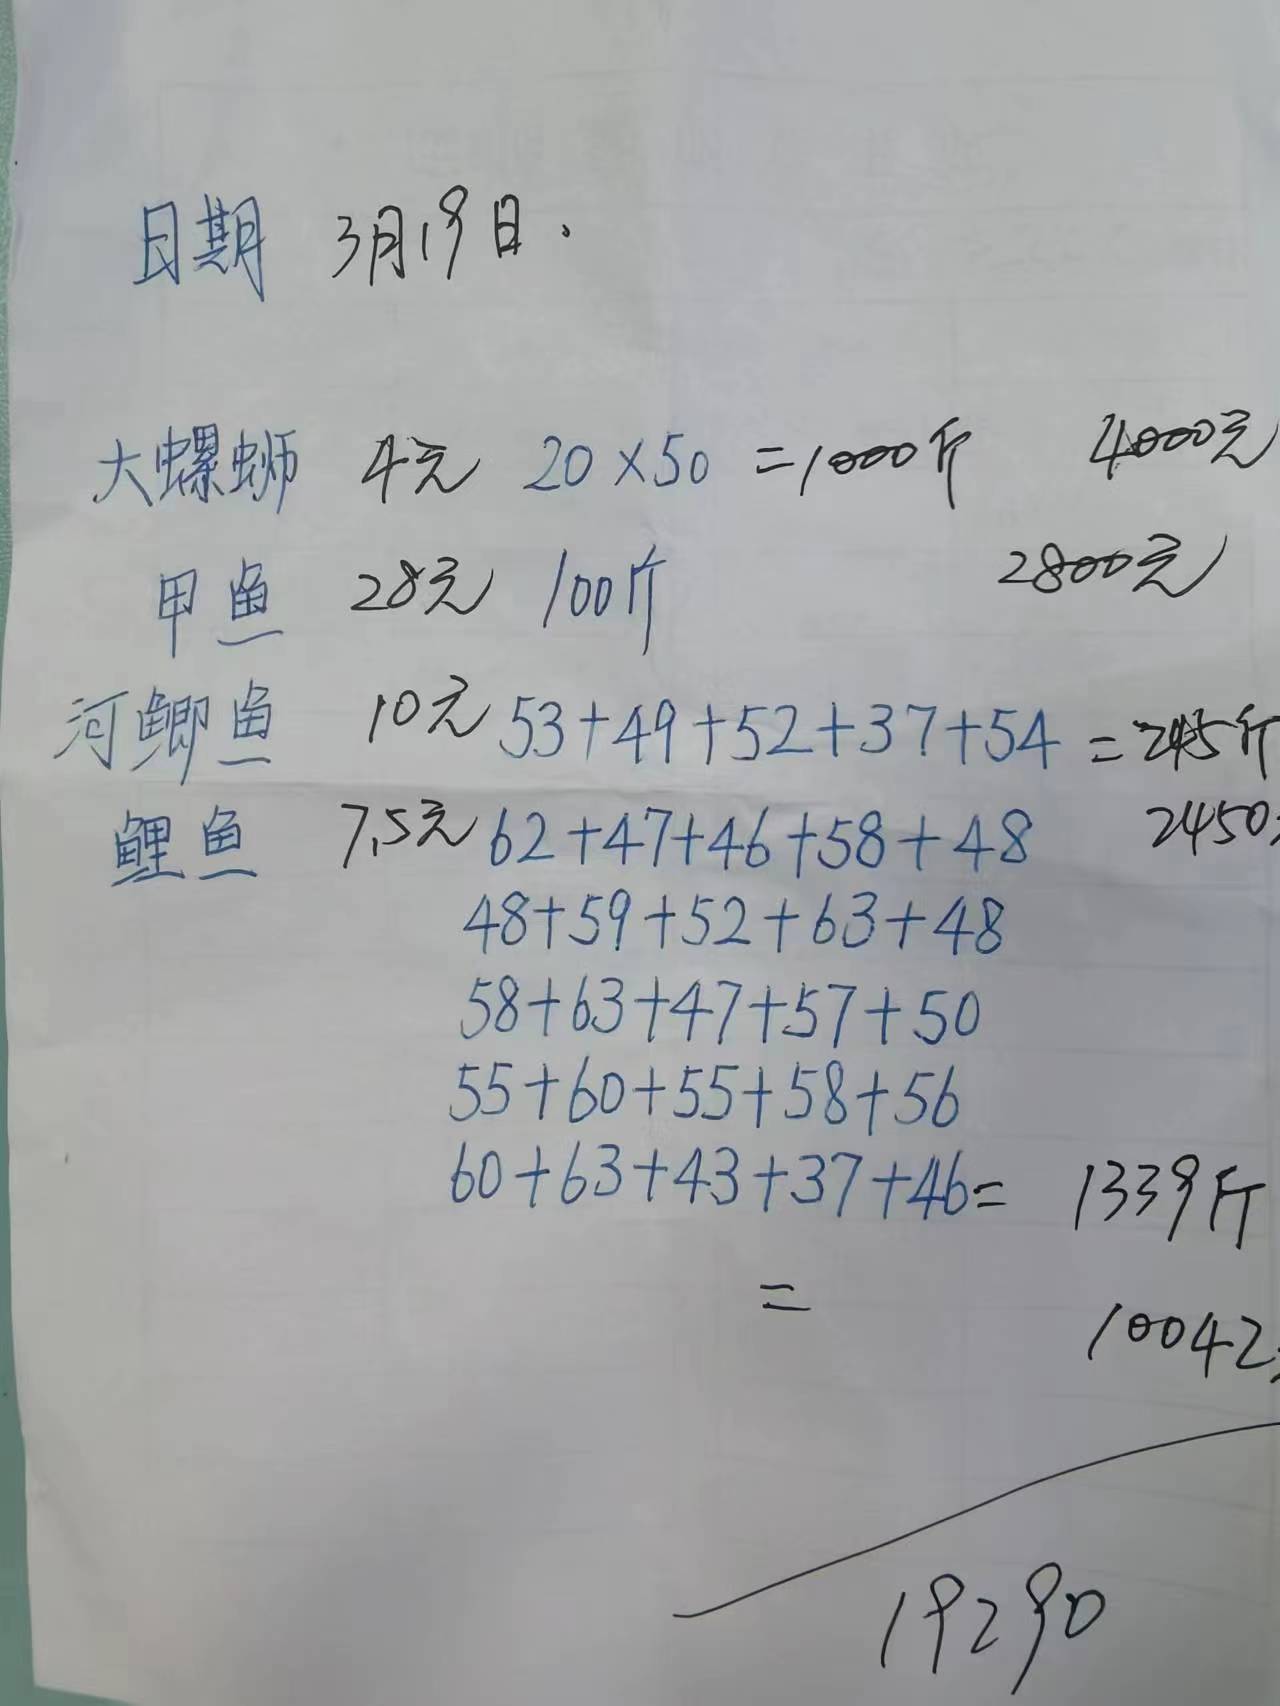 日期 3月19日.
大螺蛳 4元 20×50=1000斤 4000元
甲鱼 28元 100斤 2800元
河鲫鱼 10元 53+49+52+37+54=245斤
鲤鱼 7.5元 62+47+46+58+48 2450
48+59+52+63+48
58+63+47+57+50
55+60+55+58+56
60+63+43+37+46= 1339斤
= 10042
19290